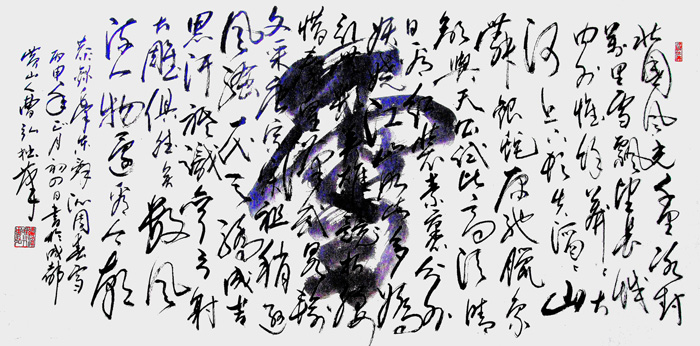 北国风光千里冰封
萬里雪飘望長城
内外惟馀莽々大
河上下顿失滔々山
舞银蛇原驰臘象
欲與天公试比高须晴
日看红装素裹分外
妖娆江山如此多嬌
引無數英雄競折腰
惜秦皇漢武略输
文采唐宗宋祖稍逊
风骚一代天骄成吉
思汗祗識彎弓射
大雕俱往矣數风
流人物還看今朝
恭録毛泽东词沁园春雪
丙申年正月初四日書於成都
營山人曹弘